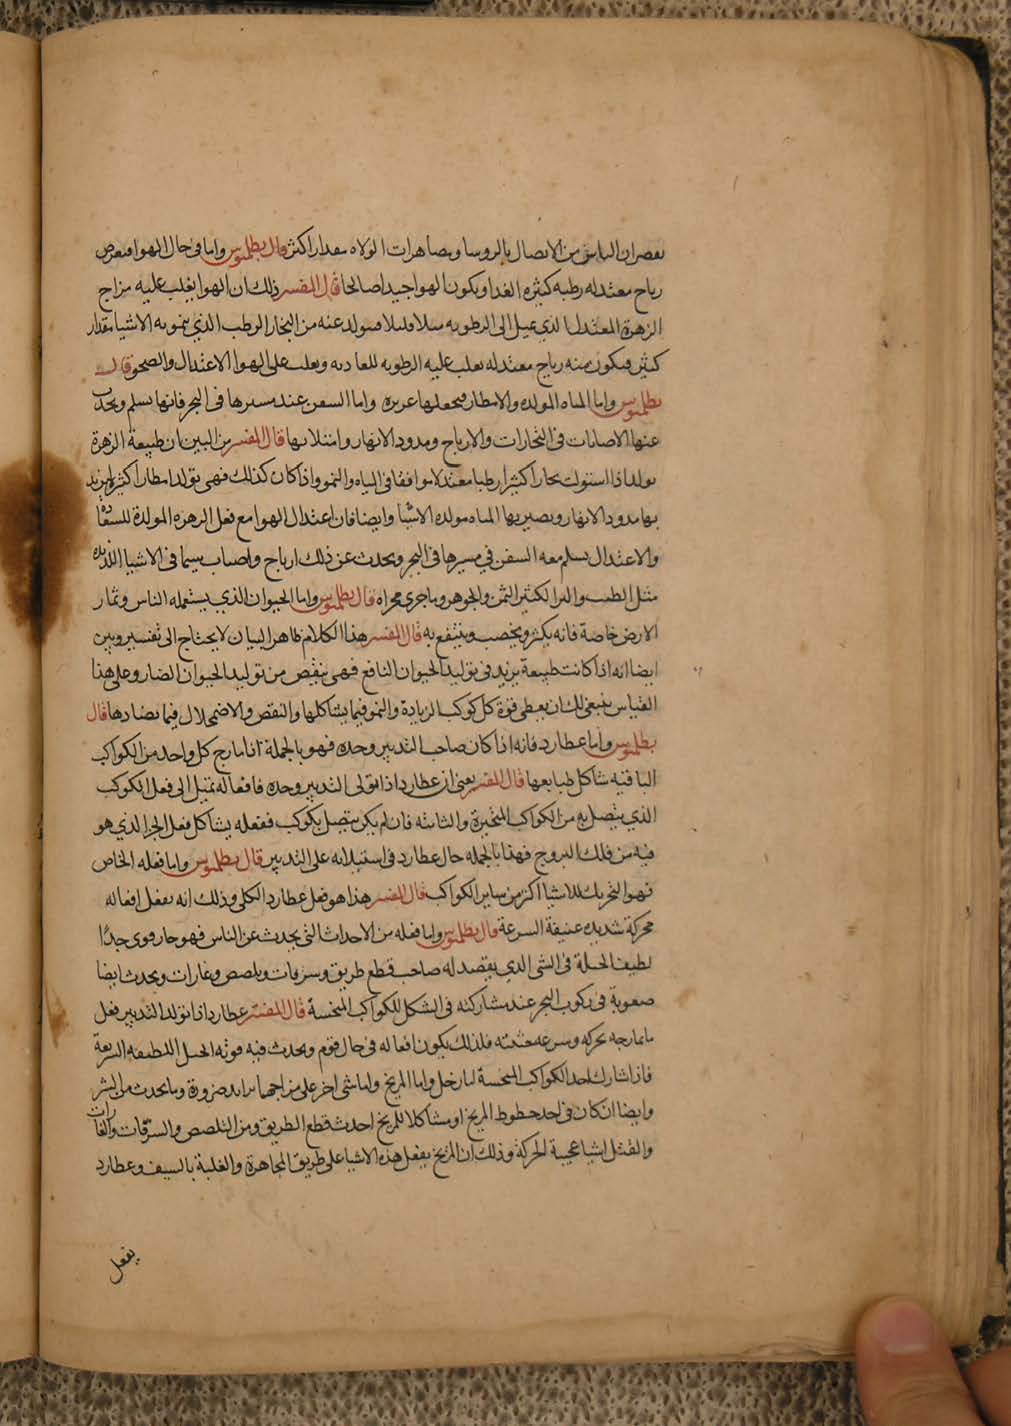 بعض ان الناس من الاتصال بالروسا ومصاهرات الولاه مقدارا كثر قال بطلميوس واما في حال الهوا فتعرض
رياح معتدله رطبه كثيره الغذا ويكون الهوا جيدا صالحا قال المفسر ذلك ان الهوا يغلب عليه مزاج
الزهرة المعتدل الذي يميل الى الرطوبه ميلا قليلا فيتولد عنه من البخار الرطب الذي ينمو به الاشيا مقدار
كثير فيكون منه رياح معتدله يغلب عليه الرطوبه للعاديه ويغلب على الهوا الاعتدال والصحو قال
بطلميوس واما المياه المولده والامطار فيجعلها غزيره واما السفن عند مسيرها في البحر فانها تسلم ويحدث
عنها الاصابات في التجارات والارباح ومدود الانهار وامتلاءها قال المفسر من البين ان طبيعة الزهرة
تولد اذا استولت بخارا كثيرا رطبا معتدلا موافقا في المياه والنمو واذا كان كذلك فهي تولد امطارا كثيرة يزيد
بها مدود الانهار ويصير بها المياه مولده الاشيا وايضا فان اعتدال الهوا مع فعل الزهره المولدة للسعاده
والاعتدال يسلم معه السفن في مسيرها في البحر ويحدث عن ذلك ارباح واصابات سيما في الاشيا اللذيذه
مثل الطيب والبز الكثير الثمن والجوهر وما جرى مجراه قال بطلميوس واما الحيوان الذي يستعمله الناس وثمار
الارض خاصة فانه يكثر ويخصب وينتفع به قال المفسر هذا الكلام ظاهر البيان لا يحتاج الى تفسير وبين
ايضا انه اذا كانت طبيعة يزيد في توليد الحيوان النافع فهي ينقص من توليد الحيوان الضار وعلى هذا
القياس ينبغي لك ان يعطى قوة كل كوكب الزيادة والنمو فيما يشاكلها والنقص والاضمحلال فيما يضادها قال
بطلميوس واما عطارد فانه اذا كان صاحب التدبير وحده فهو بالجملة اذا مازج كل واحد من الكواكب
الباقيه شاكل طبايعها قال المفسر يعني ان عطارد اذا تولى التدبير وحده فافعاله تميل الى فعل الكوكب
الذي يتصل به من الكواكب المتحيرة والثابته فان لم يكن يتصل بكوكب ففعله يشاكل فعل الجزا الذي هو
فيه من فلك البروج فهذا بالجمله حال عطارد في استيلايه على التدبير قال بطلميوس واما فعله الخاص
فهو التحريك للاشيا اكثر من ساير الكواكب قال المفسر هذا هو فعل عطارد الكلي وذلك انه يفعل افعاله
محركة شديده عنيفة السرعة قال بطلميوس واما فعله من الاحداث التي يحدث عن الناس فهو حار قوي جدا
لطيف الحيلة في الشي الذي يقصد له صاحب قطع طريق وسرقات وتلصص وغارات ويحدث ايضا
صعوبة في ركوب البحر عند مشاركته في الشكل للكواكب المنحسة قال المفسر عطارد اذا تولد التدبير فعل
ما يمازجه بحركه وسرعه فلذلك يكون افعاله في حال قوم ويحدث فيه قوته الحيل اللطيفه السريعة
فاذا شارك احد الكواكب المنحسة اما زحل واما المريخ واما شي اخر على مزاجهما ضرورة وما يحدث من الشر
وايضا ان كان في احد حظوظ المريخ او مشاكلا للمريخ احدث قطع الطريق ومن التلصص والسرقات والغارات
والقتل اشيا عجيبة الحركه وذلك ان المريخ يفعل هذه الاشيا على طريق المجاهرة والغلبة بالسيف وعطارد
يفعل